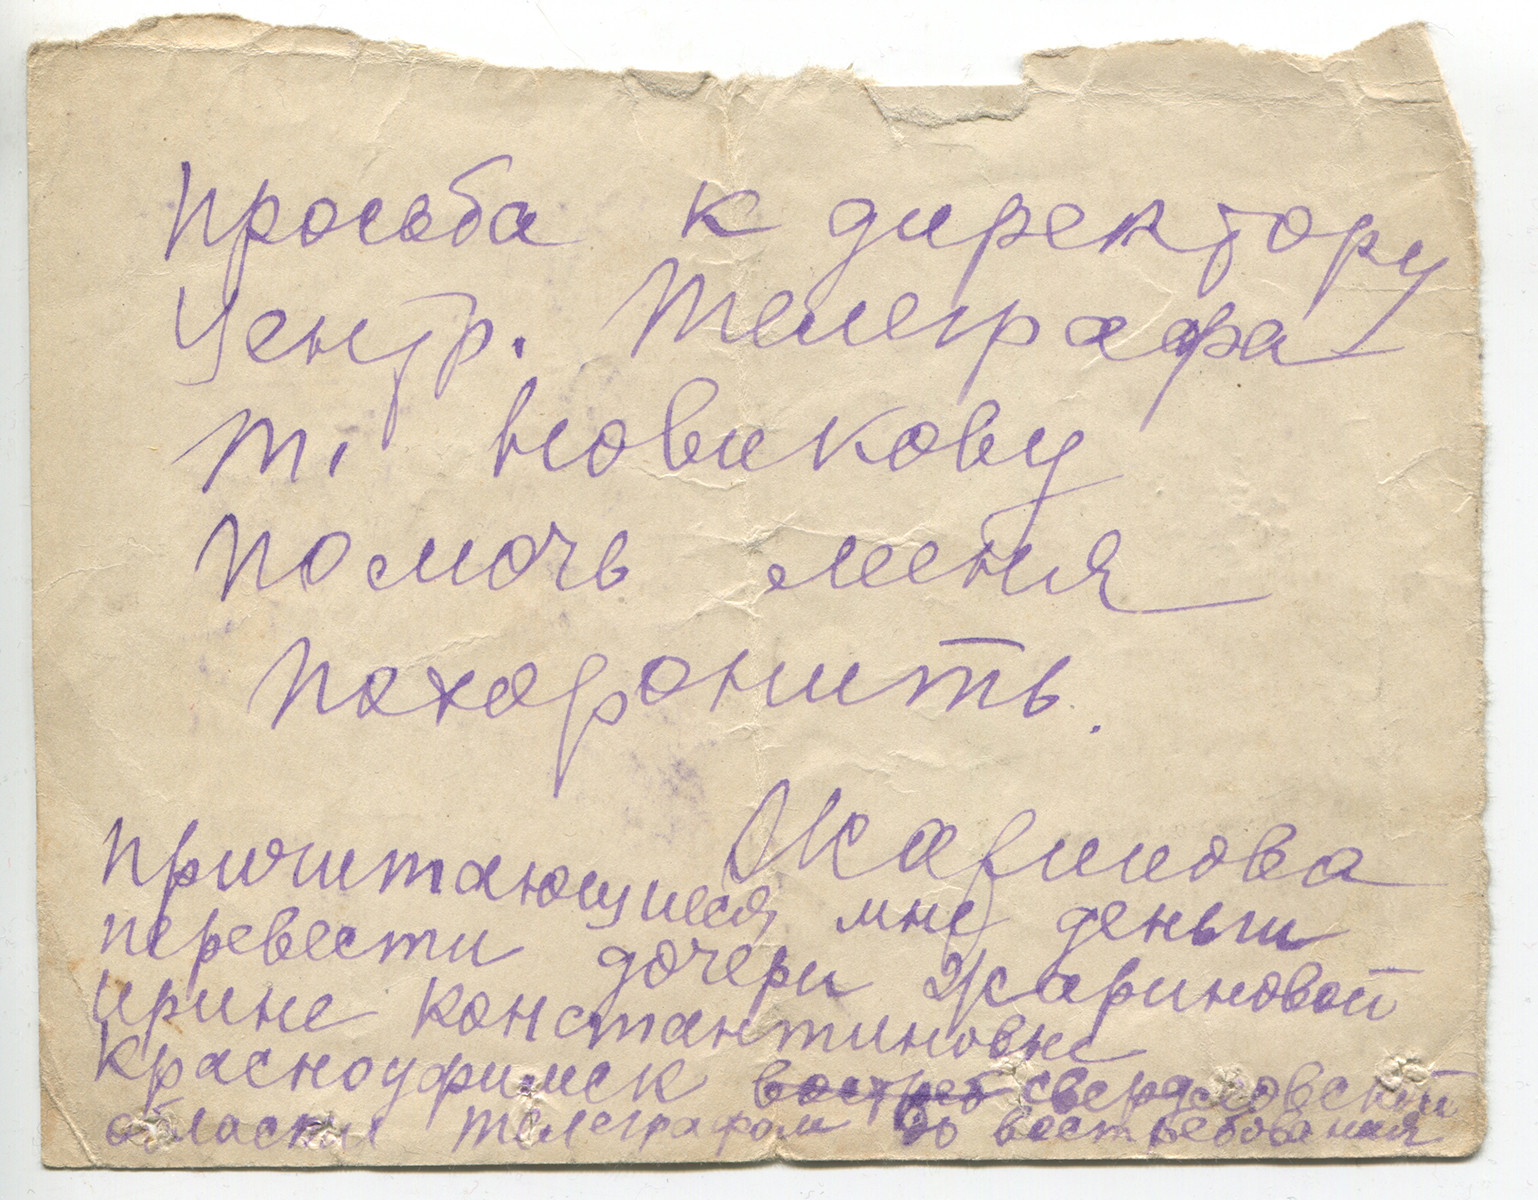 Просьба к директору
Центр. Телеграфа
т. Новикову
помочь меня
похоронить.
Жаринова
Причитающиеся мне деньги
перевести дочери Жариновой
Ирине Константиновне
Красноуфимск востреб свердловской
области телеграфом до востребования